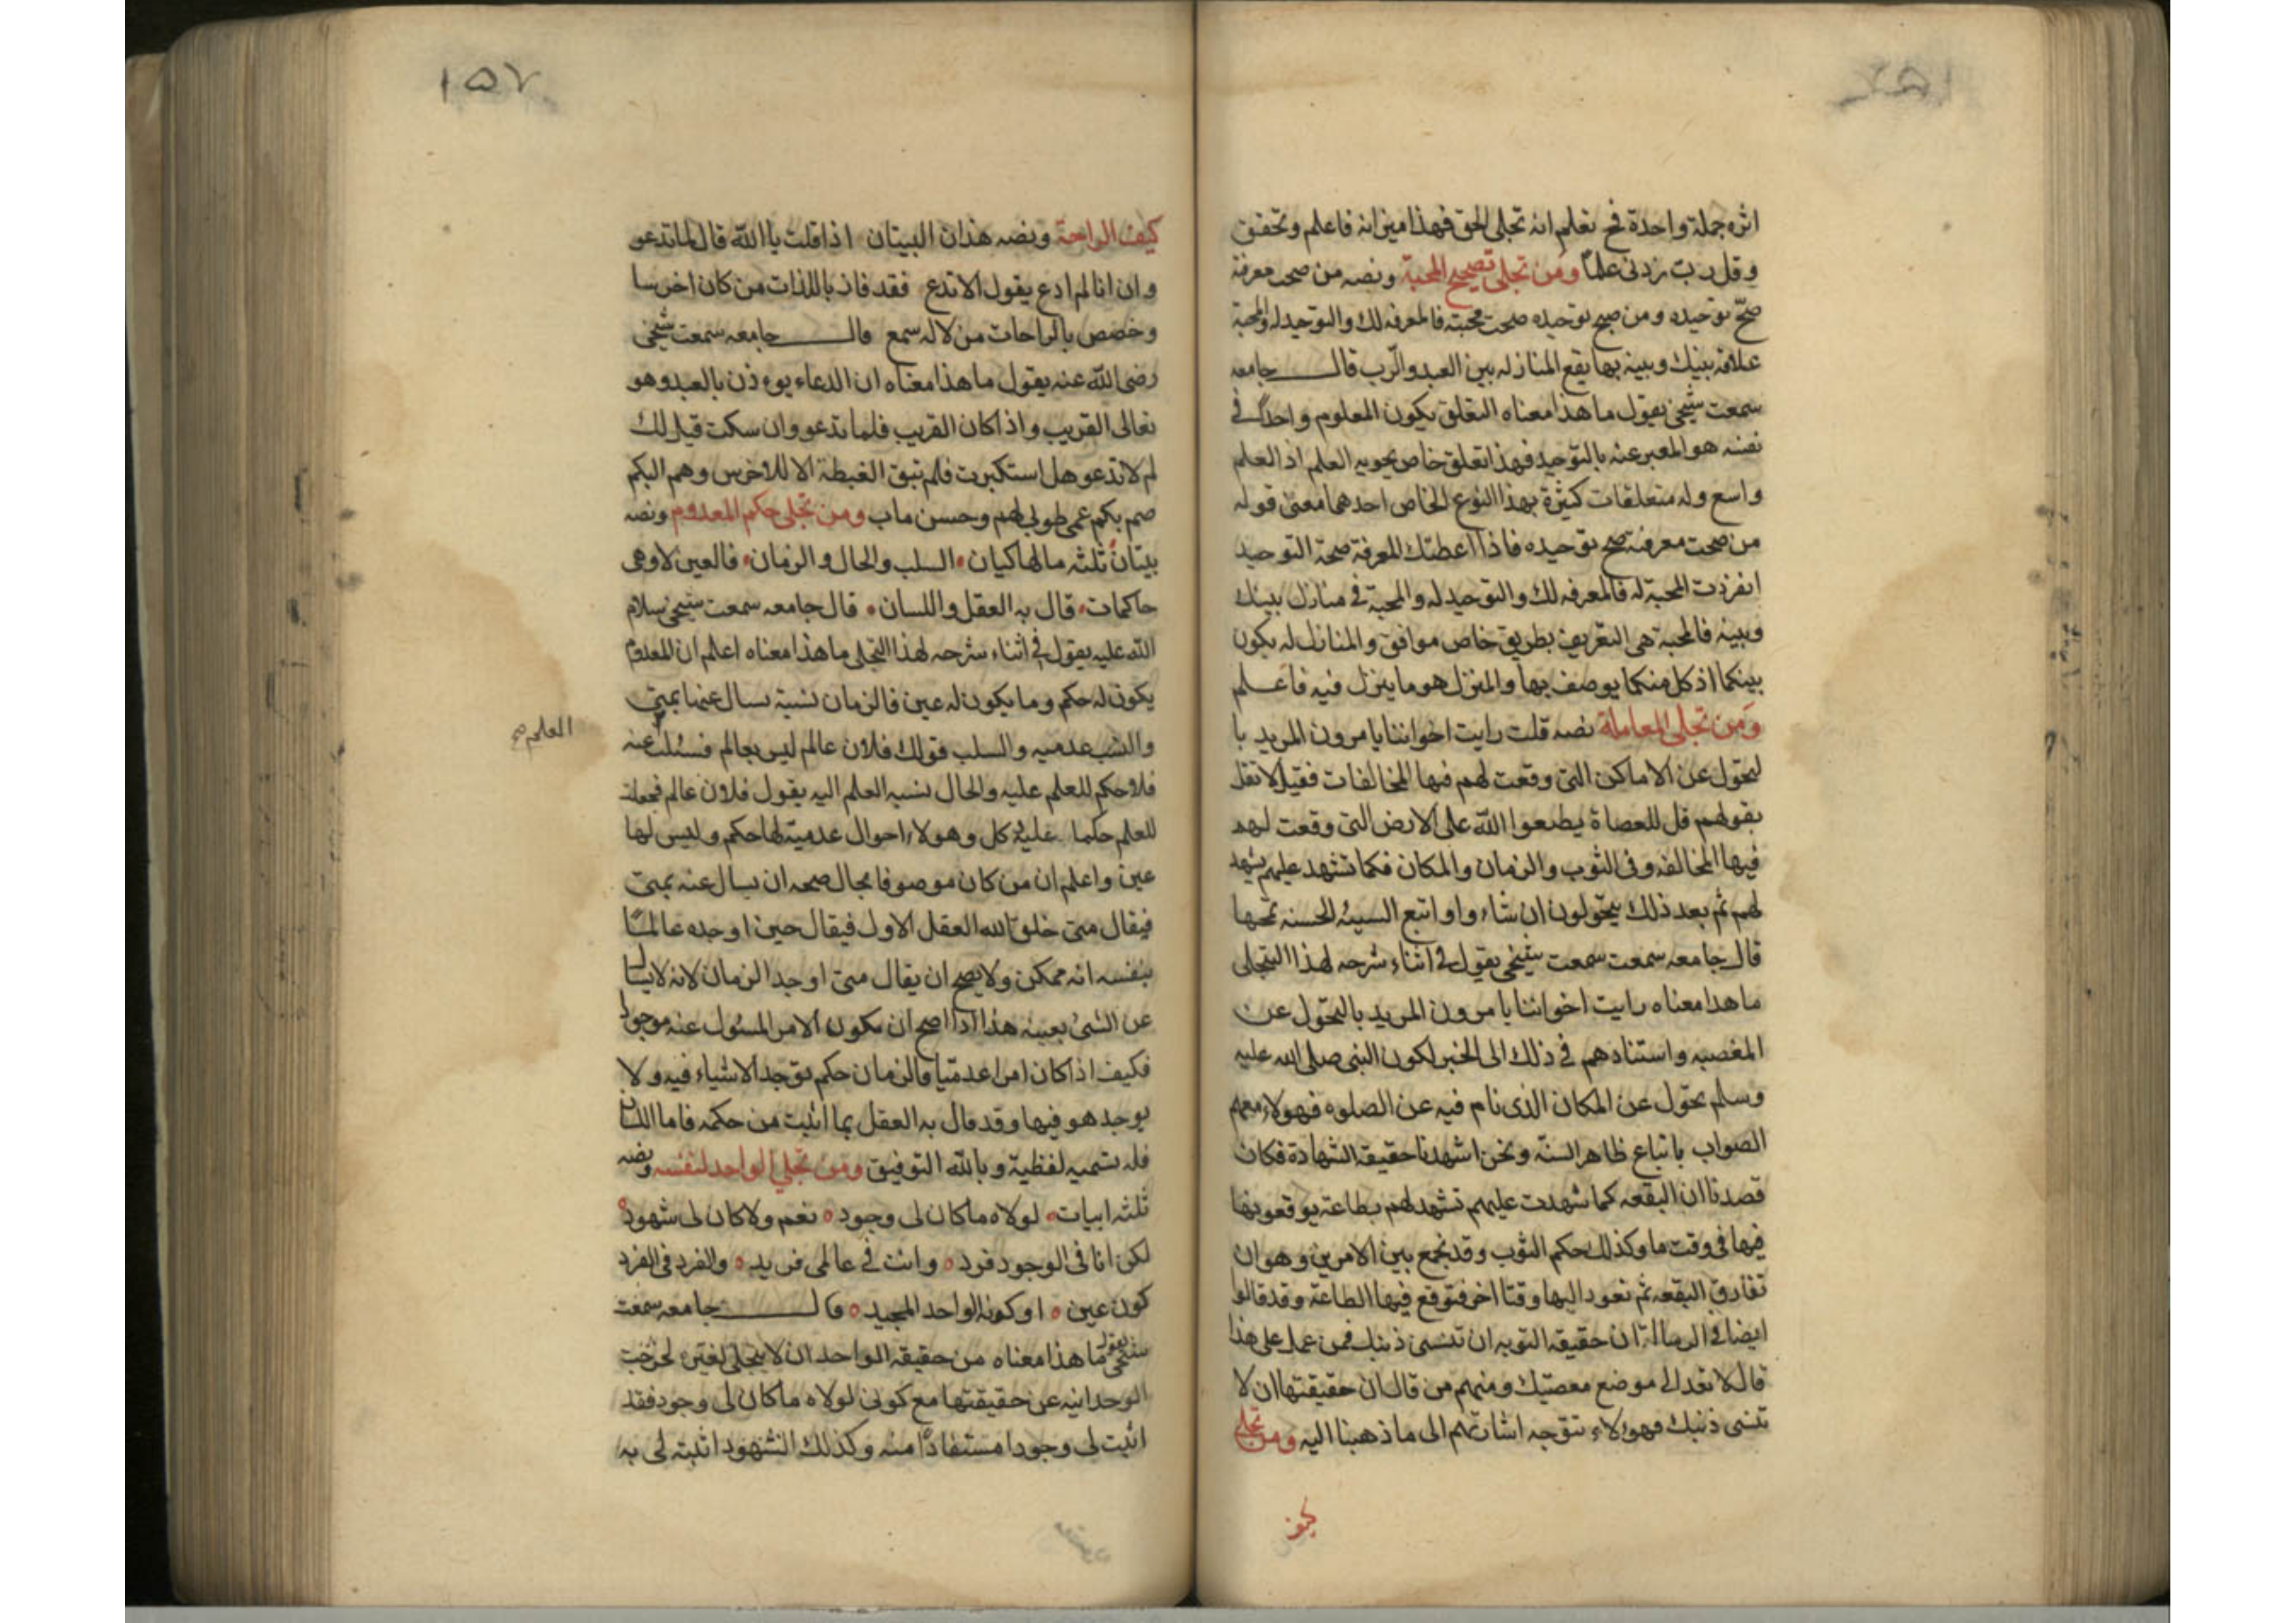 اثره جملة واحدة فح تعلم انه تجلى الحق فهذا ميزانه فاعلم وتحقق
وقل رب زدنى علما ومن تجلى تصحيح المحبة ونصه من صحت معرفته
صح توحيده ومن صح توحيده صحت محبته فالمعرفه لك والتوحيد له والمحبة
علاقة بينك وبينه بها يقع المنازله بين العبد والرب قال جامعه
سمعت شيخى يقول ما هذا معناه التعلق بكون المعلوم واحدا فى
نفسه هو المعبر عنه بالتوحيد فهذا تعلق خاص يحويه العلم اذ العلم
واسع وله متعلقات كثيرة بهذا النوع الخاص احدهما معنى قوله
من صحت معرفته صح توحيده فاذا اعطتك المعرفة صحة التوحيد
انفردت المحبة له فالمعرفه لك والتوحيد له والمحبة فى منازل بينك
وبينه فالمحبة هى التعريف بطريق خاص موافق والمنازله يكون
بينكما اذ كل منكما يوصف بها والمنزل هو ما ينزل فيه فاعلم
ومن تجلى المعاملة نصه قلت رايت اخواننا يامرون المريد با
لتحول عن الاماكن التى وقعت لهم فيها المخالفات فقيل لا تقل
بقولهم قل للعصاة يطيعوا الله على الارض التى وقعت لهم
فيها المخالفه وفى الثوب والزمان والمكان فكما تشهد عليهم يشهد
لهم ثم بعد ذلك يتحولون ان شاءوا واتبع السيئه الحسنه تمحها
قال جامعه سمعت سمعت شيخى يقول فى اثناء شرحه لهذا التجلى
ما هذا معناه رايت اخواننا يامرون المريد بالتحول عن
المعصيه واستنادهم فى ذلك الى الخبر لكون النبى صلى الله عليه
وسلم تحول عن المكان الذى نام فيه عن الصلوه فهولاء معهم
الصواب باتباع ظاهر السنة ونحن اشهدنا حقيقة الشهادة فكان
قصدنا ان البقعه كما شهدت عليهم تشهد لهم بطاعة يوقعونها
فيها فى وقت ما وكذلك حكم الثوب وقد نجمع بين الامرين وهو ان
تفارق البقعه ثم تعود اليها وقتا اخر فتوقع فيها الطاعة وقد قالوا
ايضا فى الرسالة ان حقيقة التوبه ان تنسى ذنبك فمن عمل على هذا
قال لا تعد الى موضع معصيتك ومنهم من قال ان حقيقتها ان لا
تنسى ذنبك فهولاء تتوجه اشارتهم الى ما ذهبنا اليه ومن تجلى
كيف
١٥٧
كيف الراحة ونصه هذان البيتان اذا قلت يا الله قال لما تدعو
وان انا لم ادع يقول الا تدع فقد فاز باللذات من كان اخرسا
وخصص بالراحات من لا له سمع قال جامعه سمعت شيخى
رضى الله عنه يقول ما هذا معناه ان الدعاء يوءذن بالبعد وهو
تعالى القريب واذا كان القريب فلما تدعو وان سكت قيل لك
لم لا تدعو هل استكبرت فلم تبق الغبطة الا للاخرس وهم البكم
صم بكم عمى طوبى لهم وحسن ماب ومن تجلى حكم المعدوم ونصه
بيتان ثلثه ما لها كيان السلب والحال والزمان فالعين لا وهى
حاكمات قال به العقل واللسان قال جامعه سمعت شيخى سلام
الله عليه يقول فى اثناء شرحه لهذا التجلى ما هذا معناه اعلم ان المعدوم
يكون له حكم وما يكون له عين فالزمان نسبة يسال عنها بمتى
والنسب عدميه والسلب قولك فلان عالم ليس بعالم فسلب عنه
العلم صح
فلا حكم للعلم عليه والحال نسبه العلم اليه يقول فلان عالم فجعلت
للعلم حكما عليه كل وهولاء احوال عدمية لها حكم وليس لها
عين واعلم ان من كان موصوفا بحال صح ان يسال عنه بمتى
فيقال متى خلق الله العقل الاول فيقال حين اوجده عالما
بنفسه انه ممكن ولا يصح ان يقال متى اوجد الزمان لانه لا يسال
عن الشىء بعينه هذا اذا صح ان يكون الامر المسئول عنه موجودا
فكيف اذا كان امرا عدميا فالزمان حكم توجد الاشياء فيه ولا
يوجد هو فيها وقد قال به العقل بما اثبت من حكمه فاما اللسان
فله تسميه لفظية وبالله التوفيق ومن تجلى الواحد لنفسه ونصه
ثلثه ابيات لولاه ما كان لى وجود نعم ولا كان لى شهود
لكن انا فى الوجود فرد وانت فى عالمى فريد والفرد فى الفرد
كون عين او كونه الواحد المجيد قال جامعه سمعت
شيخى يقول ما هذا معناه من حقيقة الواحد ان لا يتجلى لغيره لخرجت
الوحدانيه عن حقيقتها مع كونى لولاه ما كان لى وجود فقد
اثبت لى وجودا مستفادا منه وكذلك الشهود اثبته لى به